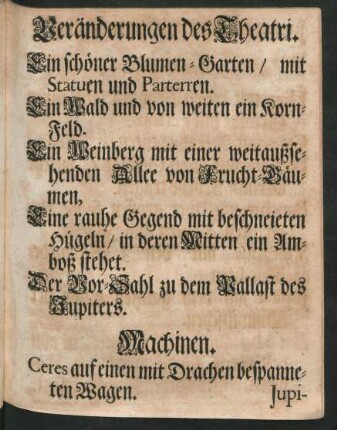 Veränderungen des Theatri.
Ein schöner Blumen-Garten / mit
Statuen und Parterren.
Ein Wald und von weiten ein Korn-
Feld.
Ein Weinberg mit einer weitaußse-
henden Allee von Frucht-Bäu-
men,
Eine rauhe Gegend mit beschneieten
Hügeln / in deren Mitten ein Am-
boß stehet.
Der Vor-Sahl zu dem Pallast des
Jupiters.
Machinen.
Ceres auf einen mit Drachen bespanne-
ten Wagen.
Jupi-